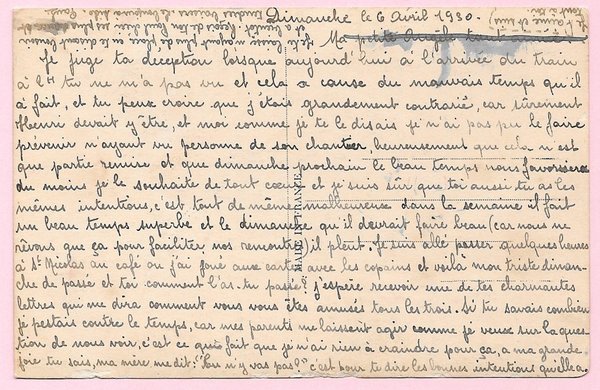 Dimanche le 6 Avril 1930.
Ma petite
Je juge ta déception lorsque aujourd'hui à l'arrivée du train
à 1H tu ne m'a pas vu et cela a cause du mauvais temps qu'il
à fait, et tu peux croire que j'étais grandement contrarié, car sûrement
Henri devait y être, et moi comme je te le disais je n'ai pas pu le faire
prévenir n'ayant vu personne de son chantier heureusement que cela n'est
que partie remise et que dimanche prochain le beau temps nous favorisera
du moins je le souhaite de tout cœur et je suis sûr que toi aussi tu as les
mêmes intentions, c'est tout de même malheureux dans la semaine il fait
un beau temps superbe et le dimanche qu'il devrait faire beau (car nous ne
rêvons que ça pour faciliter nos rencontres) il pleut. Je suis allé passer quelques heures
à St Nicolas au café ou j'ai joué aux cartes avec les copains et voilà mon triste diman-
che de passé et toi comment l'as-tu passé, j'espère recevoir une de tes charmantes
lettres qui me dira comment vous vous êtes amusés tous les trois. Si tu savais combien
je pestais contre le temps, car mes parents me laissoit agir comme je veux sur la ques-
tion de nous voir, c'est ce qui fait que je n'ai rien à craindre pour ça, a ma grande
joie tu sais, ma mère me dit: "tu n'y vas pas?" c'est pour te dire les bonnes intentions qu'elle a.
MADE IN FRANCE